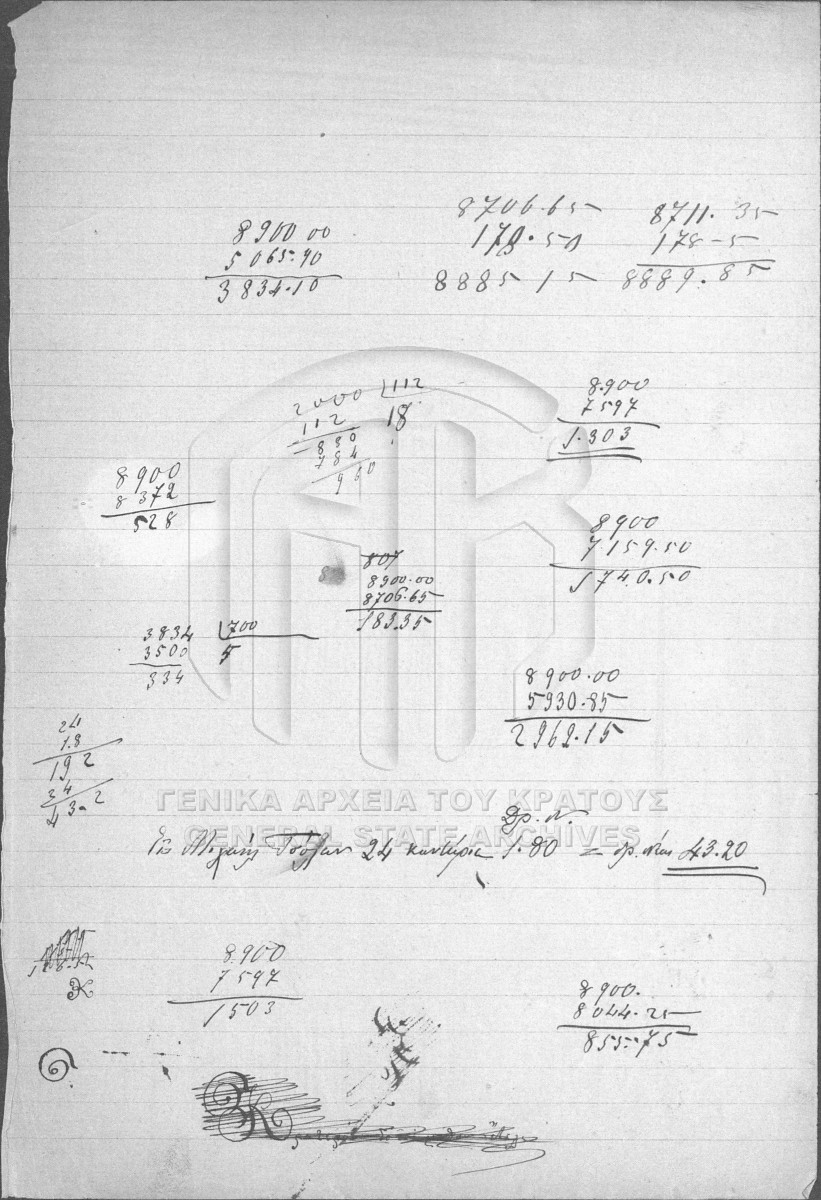 8706.65
178.50
8885 15
8711. 35
178-5
8889.85
8900 00
5065.90
3834.10
2000 112
112 18
880
784
960
8.900
7597
1.303
8900
8372
528
8900
7159.50
1740.50
807
8900.00
8706.65
183.35
3834 700
3500 5
334
8900.00
5930.85
2962.15
24
1.8
192
24
43.2
ΓΕΝΙΚΑ ΑΡΧΕΙΑ ΤΟΥ ΚΡΑΤΟΥΣ
GENERAL STATE ARCHIVES
Δρ. Ν.
24 καντάρια 1.80 = δρ. νέαι 43.20
8.900
7597
1503
8900.
8044.25
855.75